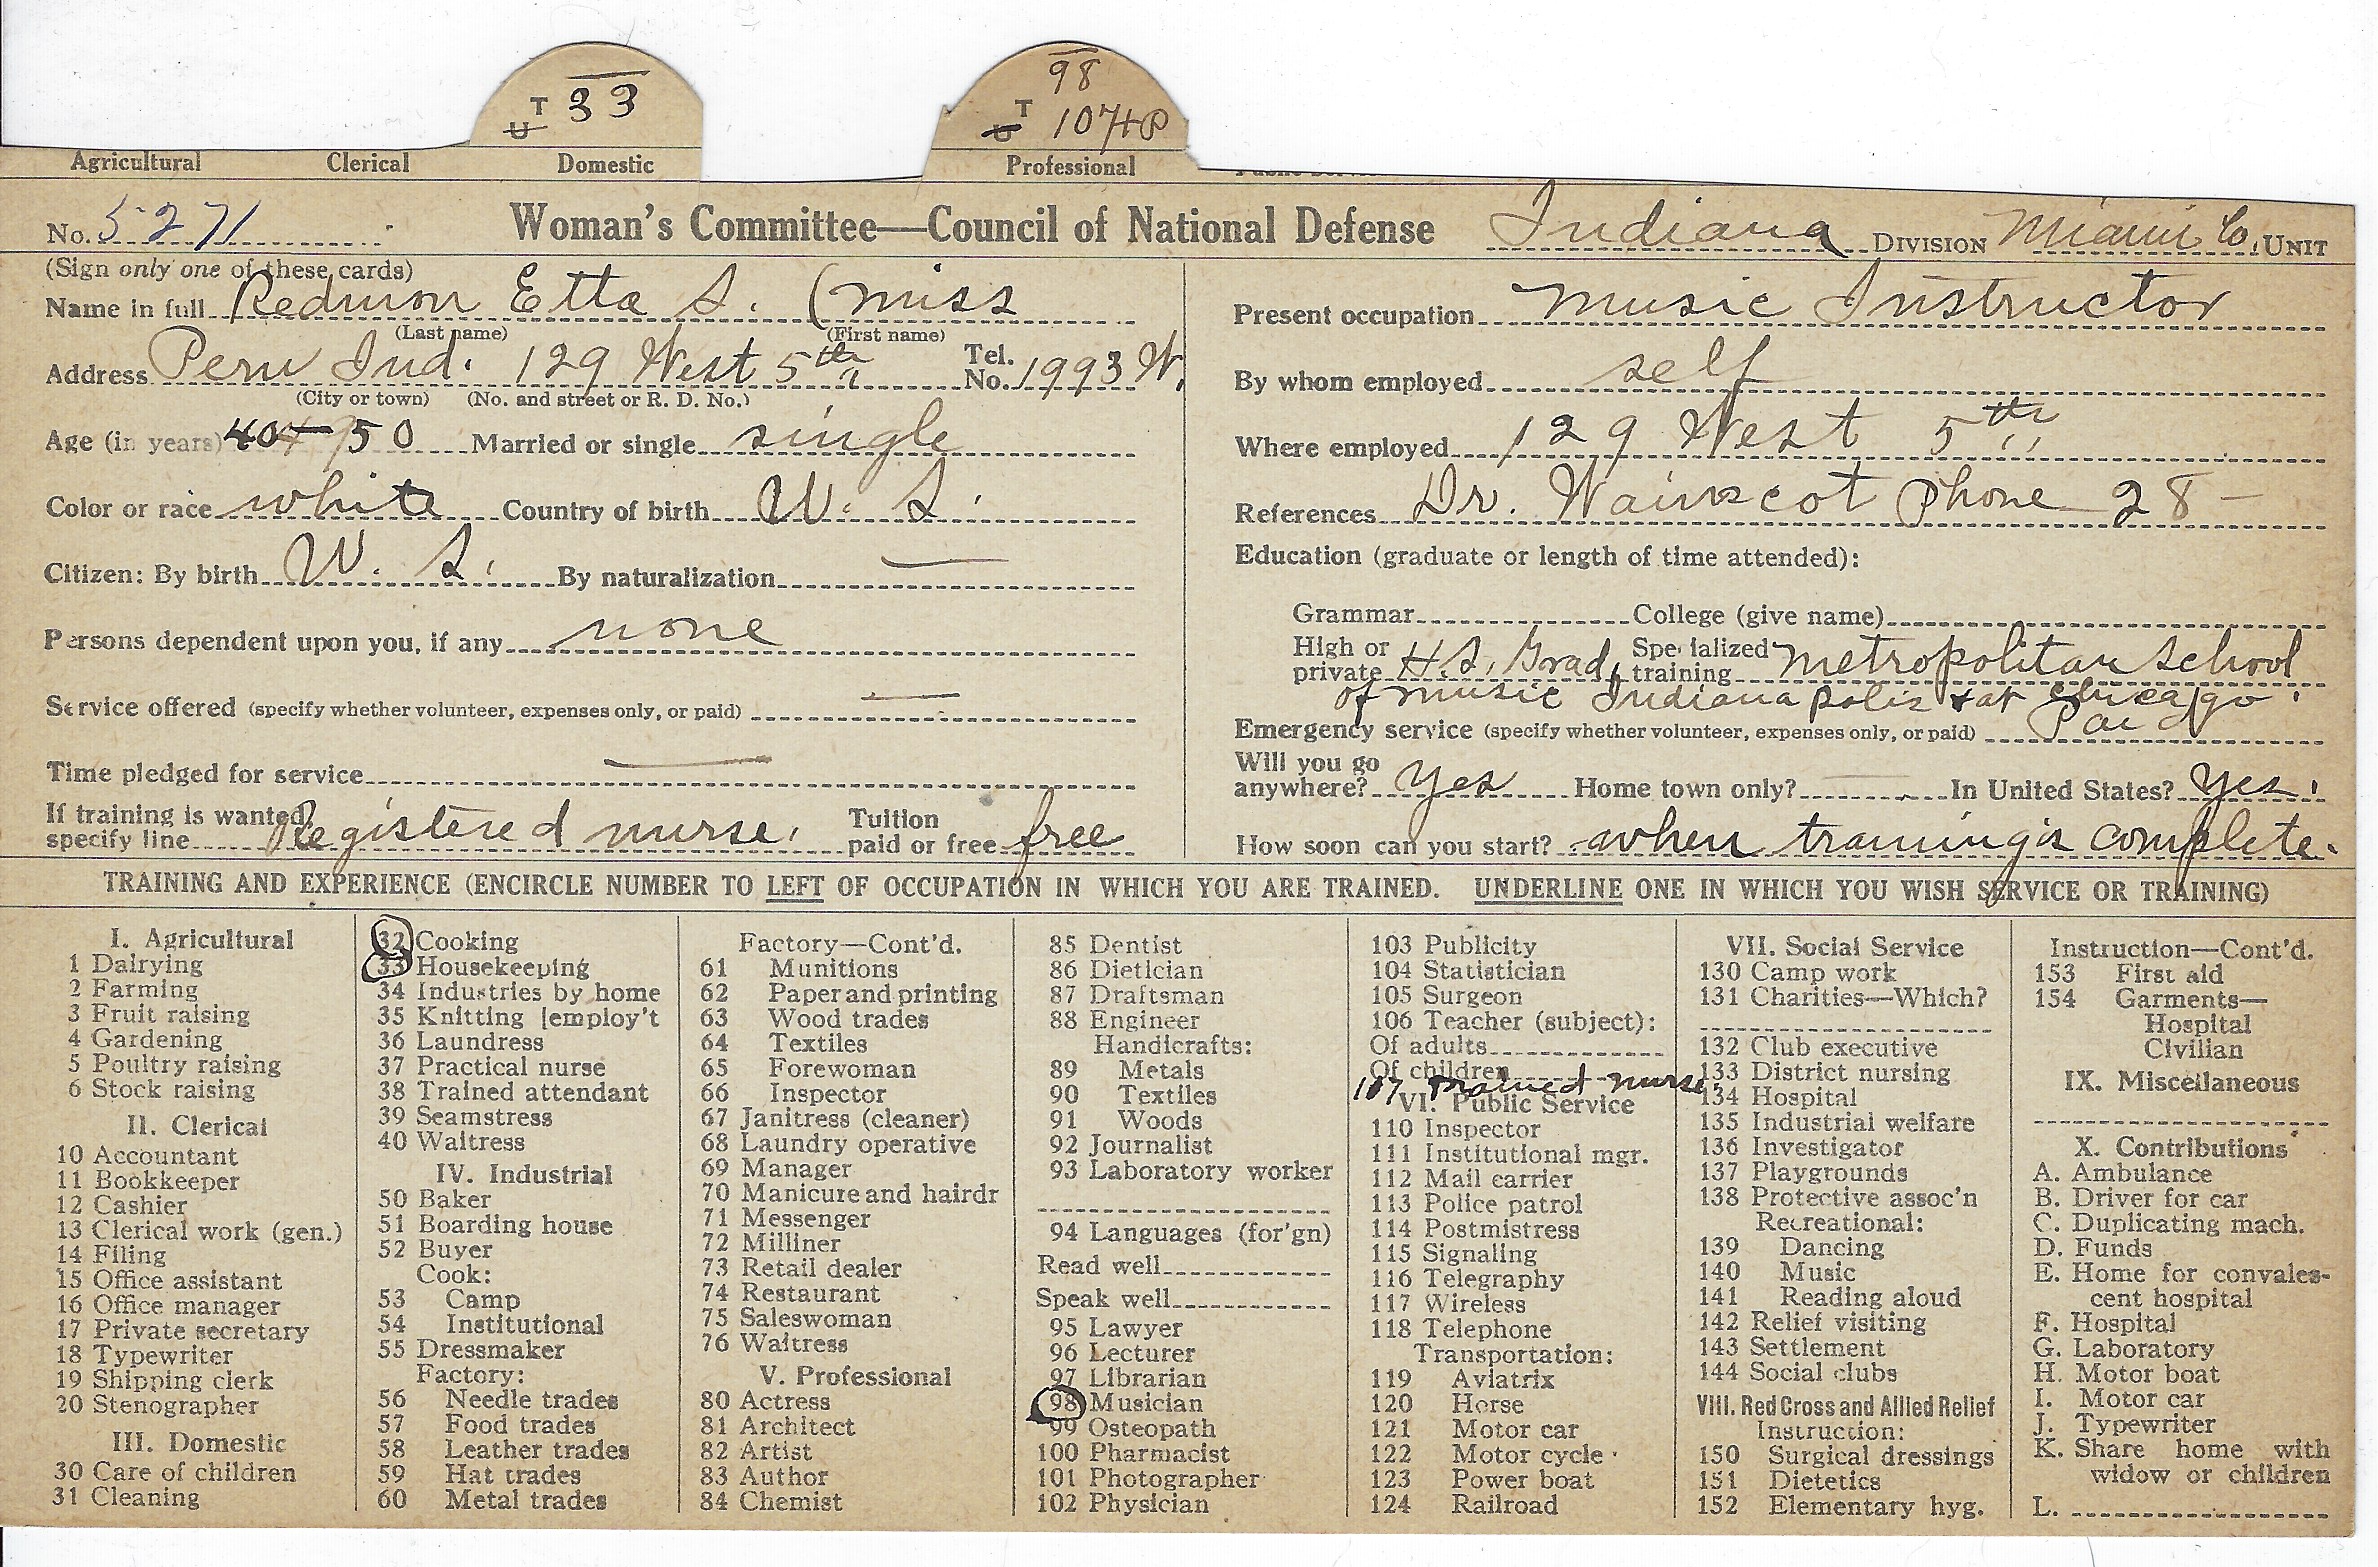 T 33
U
98
T 107 HP
U
Agricultural Clerical Domestic Professional
No. 5271 Woman's Committee—Council of National Defense Indiana DIVISION Miami Co. UNIT
(Sign only one of these cards)
Name in full Redmon Etta S. (miss
(Last name) (First name)
Address Peru Ind. 129 West 5th Tel. No. 1993 W.
(City or town) (No. and street or R. D. No.)
Age (in years) 40 50 Married or single single
Color or race white Country of birth U. S.
Citizen: By birth U. S. By naturalization —
Persons dependent upon you, if any none
Service offered (specify whether volunteer, expenses only, or paid) —
Time pledged for service —
If training is wanted, specify line Registered nurse. Tuition paid or free free
Present occupation music Instructor
By whom employed self
Where employed 129 West 5th
References Dr. Wainscot Phone 28 —
Education (graduate or length of time attended):
Grammar College (give name)
High or private H. S. Grad, Specialized training metropolitan School
of music Indianapolis & at Chicago.
Emergency service (specify whether volunteer, expenses only, or paid) Paid
Will you go anywhere? Yes Home town only? — In United States? Yes.
How soon can you start? when training is complete.
TRAINING AND EXPERIENCE (ENCIRCLE NUMBER TO LEFT OF OCCUPATION IN WHICH YOU ARE TRAINED. UNDERLINE ONE IN WHICH YOU WISH SERVICE OR TRAINING)
I. Agricultural
1 Dairying
2 Farming
3 Fruit raising
4 Gardening
5 Poultry raising
6 Stock raising
II. Clerical
10 Accountant
11 Bookkeeper
12 Cashier
13 Clerical work (gen.)
14 Filing
15 Office assistant
16 Office manager
17 Private secretary
18 Typewriter
19 Shipping clerk
20 Stenographer
III. Domestic
30 Care of children
31 Cleaning
32 Cooking
33 Housekeeping
34 Industries by home
35 Knitting [employ't
36 Laundress
37 Practical nurse
38 Trained attendant
39 Seamstress
40 Waitress
IV. Industrial
50 Baker
51 Boarding house
52 Buyer
Cook:
53 Camp
54 Institutional
55 Dressmaker
Factory:
56 Needle trades
57 Food trades
58 Leather trades
59 Hat trades
60 Metal trades
Factory—Cont'd.
61 Munitions
62 Paper and printing
63 Wood trades
64 Textiles
65 Forewoman
66 Inspector
67 Janitress (cleaner)
68 Laundry operative
69 Manager
70 Manicure and hairdr
71 Messenger
72 Milliner
73 Retail dealer
74 Restaurant
75 Saleswoman
76 Waitress
V. Professional
80 Actress
81 Architect
82 Artist
83 Author
84 Chemist
85 Dentist
86 Dietician
87 Draftsman
88 Engineer
Handicrafts:
89 Metals
90 Textiles
91 Woods
92 Journalist
93 Laboratory worker
94 Languages (for'gn)
Read well
Speak well
95 Lawyer
96 Lecturer
97 Librarian
98 Musician
99 Osteopath
100 Pharmacist
101 Photographer
102 Physician
103 Publicity
104 Statistician
105 Surgeon
106 Teacher (subject):
Of adults
Of children
107 Trained nurse.
VI. Public Service
110 Inspector
111 Institutional mgr.
112 Mail carrier
113 Police patrol
114 Postmistress
115 Signaling
116 Telegraphy
117 Wireless
118 Telephone
Transportation:
119 Aviatrix
120 Horse
121 Motor car
122 Motor cycle
123 Power boat
124 Railroad
VII. Social Service
130 Camp work
131 Charities—Which?
132 Club executive
133 District nursing
134 Hospital
135 Industrial welfare
136 Investigator
137 Playgrounds
138 Protective assoc'n
Recreational:
139 Dancing
140 Music
141 Reading aloud
142 Relief visiting
143 Settlement
144 Social clubs
VIII. Red Cross and Allied Relief
Instruction:
150 Surgical dressings
151 Dietetics
152 Elementary hyg.
Instruction—Cont'd.
153 First aid
154 Garments—
Hospital
Civilian
IX. Miscellaneous
X. Contributions
A. Ambulance
B. Driver for car
C. Duplicating mach.
D. Funds
E. Home for convales-
cent hospital
F. Hospital
G. Laboratory
H. Motor boat
I. Motor car
J. Typewriter
K. Share home with
widow or children
L.